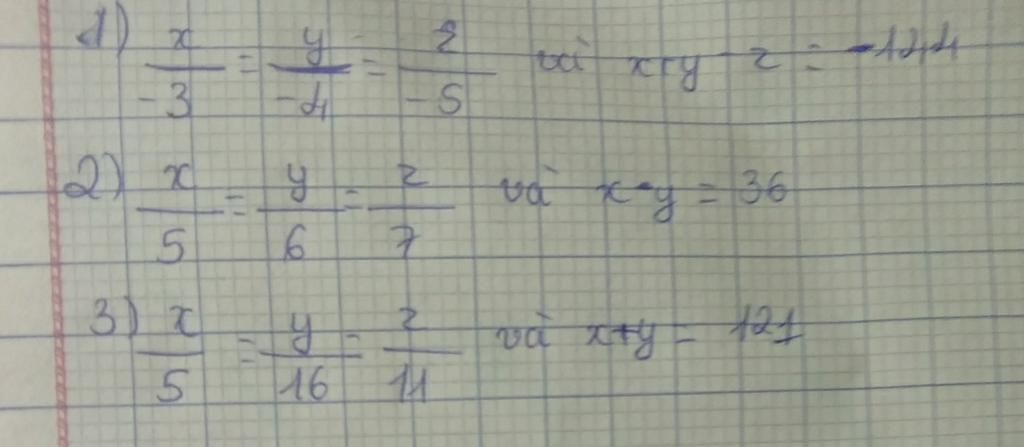 1) x/-3 = y/-4 = z/-5 và x+y z = -144
2) x/5 = y/6 = z/7 và x-y = 36
3) x/5 = y/16 = z/11 và x+y = 121